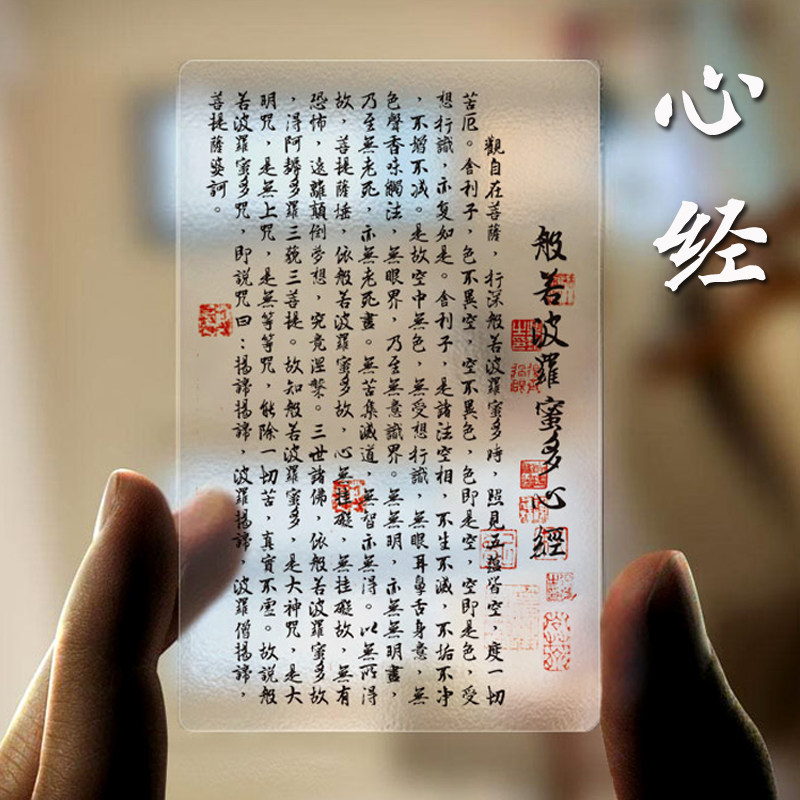 心经
般若波羅蜜多心經
觀自在菩薩，行深般若波羅蜜多時，照見五蘊皆空，度一切
苦厄。舍利子，色不異空，空不異色，色即是空，空即是色，受
想行識，亦复如是。舍利子，是諸法空相，不生不滅，不垢不净
，不增不减。是故空中無色，無受想行識，無眼耳鼻舌身意，無
色聲香味觸法，無眼界，乃至無意識界。無無明，亦無無明盡，
乃至無老死，亦無老死盡。無苦集滅道，無智亦無得。以無所得
故，菩提薩埵，依般若波羅蜜多故，心無挂礙，無挂礙故，無有
恐怖，遠離顛倒夢想，究竟涅槃。三世諸佛，依般若波羅蜜多故
，得阿耨多羅三藐三菩提。故知般若波羅蜜多，是大神咒，是大
明咒，是無上咒，是無等等咒，能除一切苦，真實不虛。故説般
若波羅蜜多咒，即説咒曰：揭諦揭諦，波羅揭諦，波羅僧揭諦，
菩提薩婆訶。